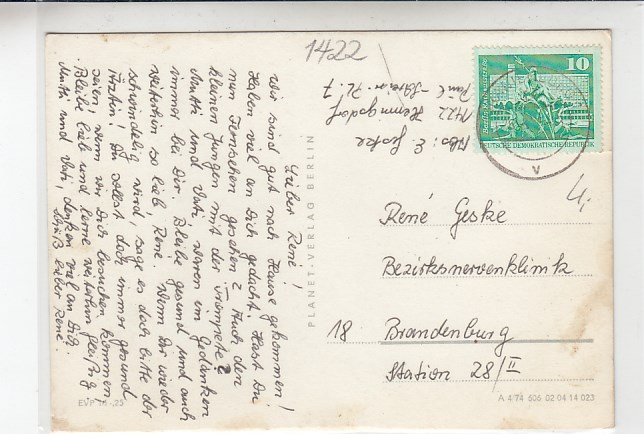 1422
Lieber René!
Wir sind gut nach Hause gekommen!
Haben viel an Dich gedacht. Hast Du
nun Fernsehen gesehen? Auch den
kleinen Jungen mit der Trompete?
Mutti und Vati waren im Gedanken
immer bei Dir. Bleibe gesund und auch
weiterhin so lieb René. Wenn Dir wieder
schwindelig wird, sage es doch bitte der
Ärztin! Du sollst doch immer gesund
sein, wenn wir Dich besuchen kommen.
Bleibe lieb und lerne weiterhin fleißig
Mutti und Vati, denken viel an Dich.
Grüß lieber René
PLANET-VERLAG BERLIN
EVP
Abs: E. Geske
1422 Hennigsdorf
Paul
Pl. 7
10
DEUTSCHE DEMOKRATISCHE REPUBLIK
V
4,-
René Geske
Bezirksnervenklinik
18 Brandenburg
Station 28/II
A 4/74 606 02 04 14 023